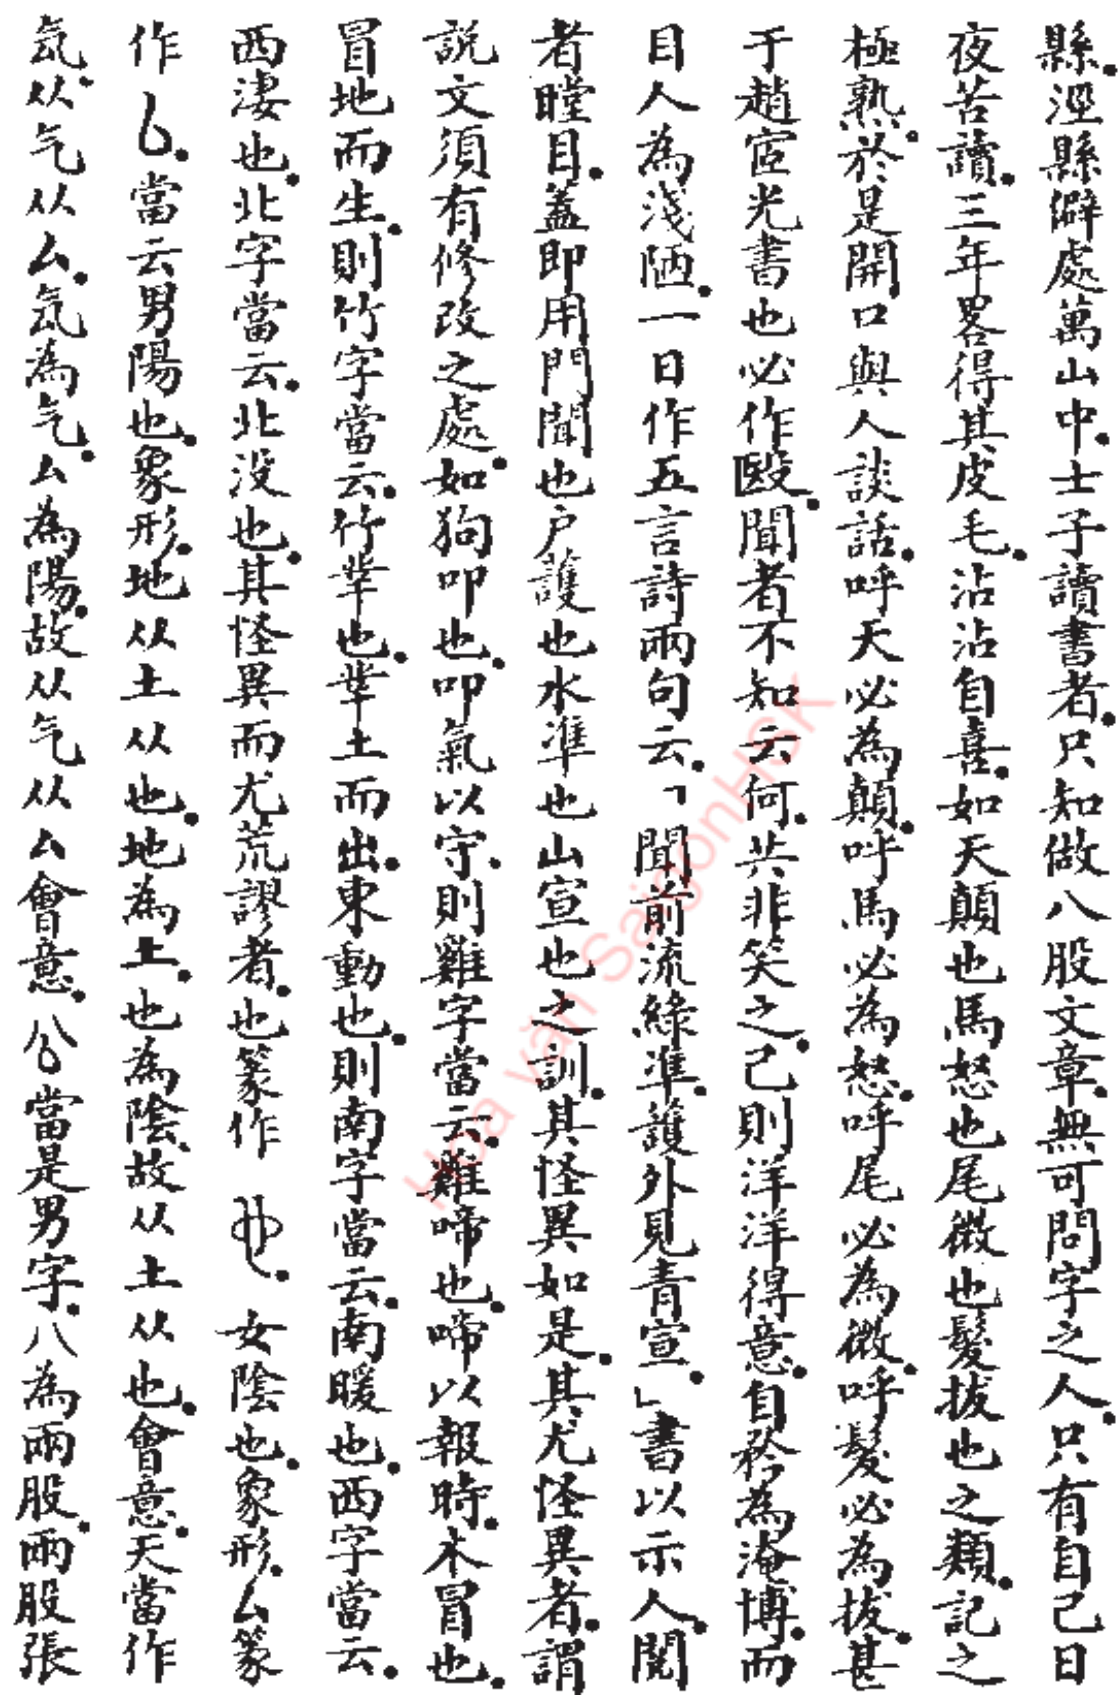 縣。涇縣僻處萬山中。士子讀書者。只知做八股文章。無可問字之人。只有自己日
夜苦讀。三年畧得其皮毛。沾沾自喜。如天顛也馬怒也尾微也髮拔也之類。記之
極熟。於是開口與人談話。呼天必為顛。呼馬必為怒。呼尾必為微。呼髮必為拔。甚
于趙宧光書也必作毆。聞者不知云何。共非笑之。己則洋洋得意。自矜為淹博。而
目人為淺陋。一日作五言詩兩句云。「聞前流綠準。護外見青宣。」書以示人。閱
者瞠目。蓋即用門聞也户護也水準也山宣也之訓。其怪異如是。其尤怪異者。謂
説文須有修改之處。如狗叩也。叩氣以守。則雞字當云。雞啼也。啼以報時。木冒也。
冒地而生。則竹字當云。竹茟也。茟土而出。東動也。則南字當云。南暖也。西字當云。
西淒也。北字當云。北没也。其怪異而尤荒謬者。也篆作 。女陰也。象形。厶篆
作 。當云男陽也。象形。地从土从也。地為土。也為陰。故从土从也。會意。天當作
気。从气从厶。気為气。厶為陽。故从气从厶會意。公當是男字。八為兩股。兩股張
Hoa văn SaigonHSK